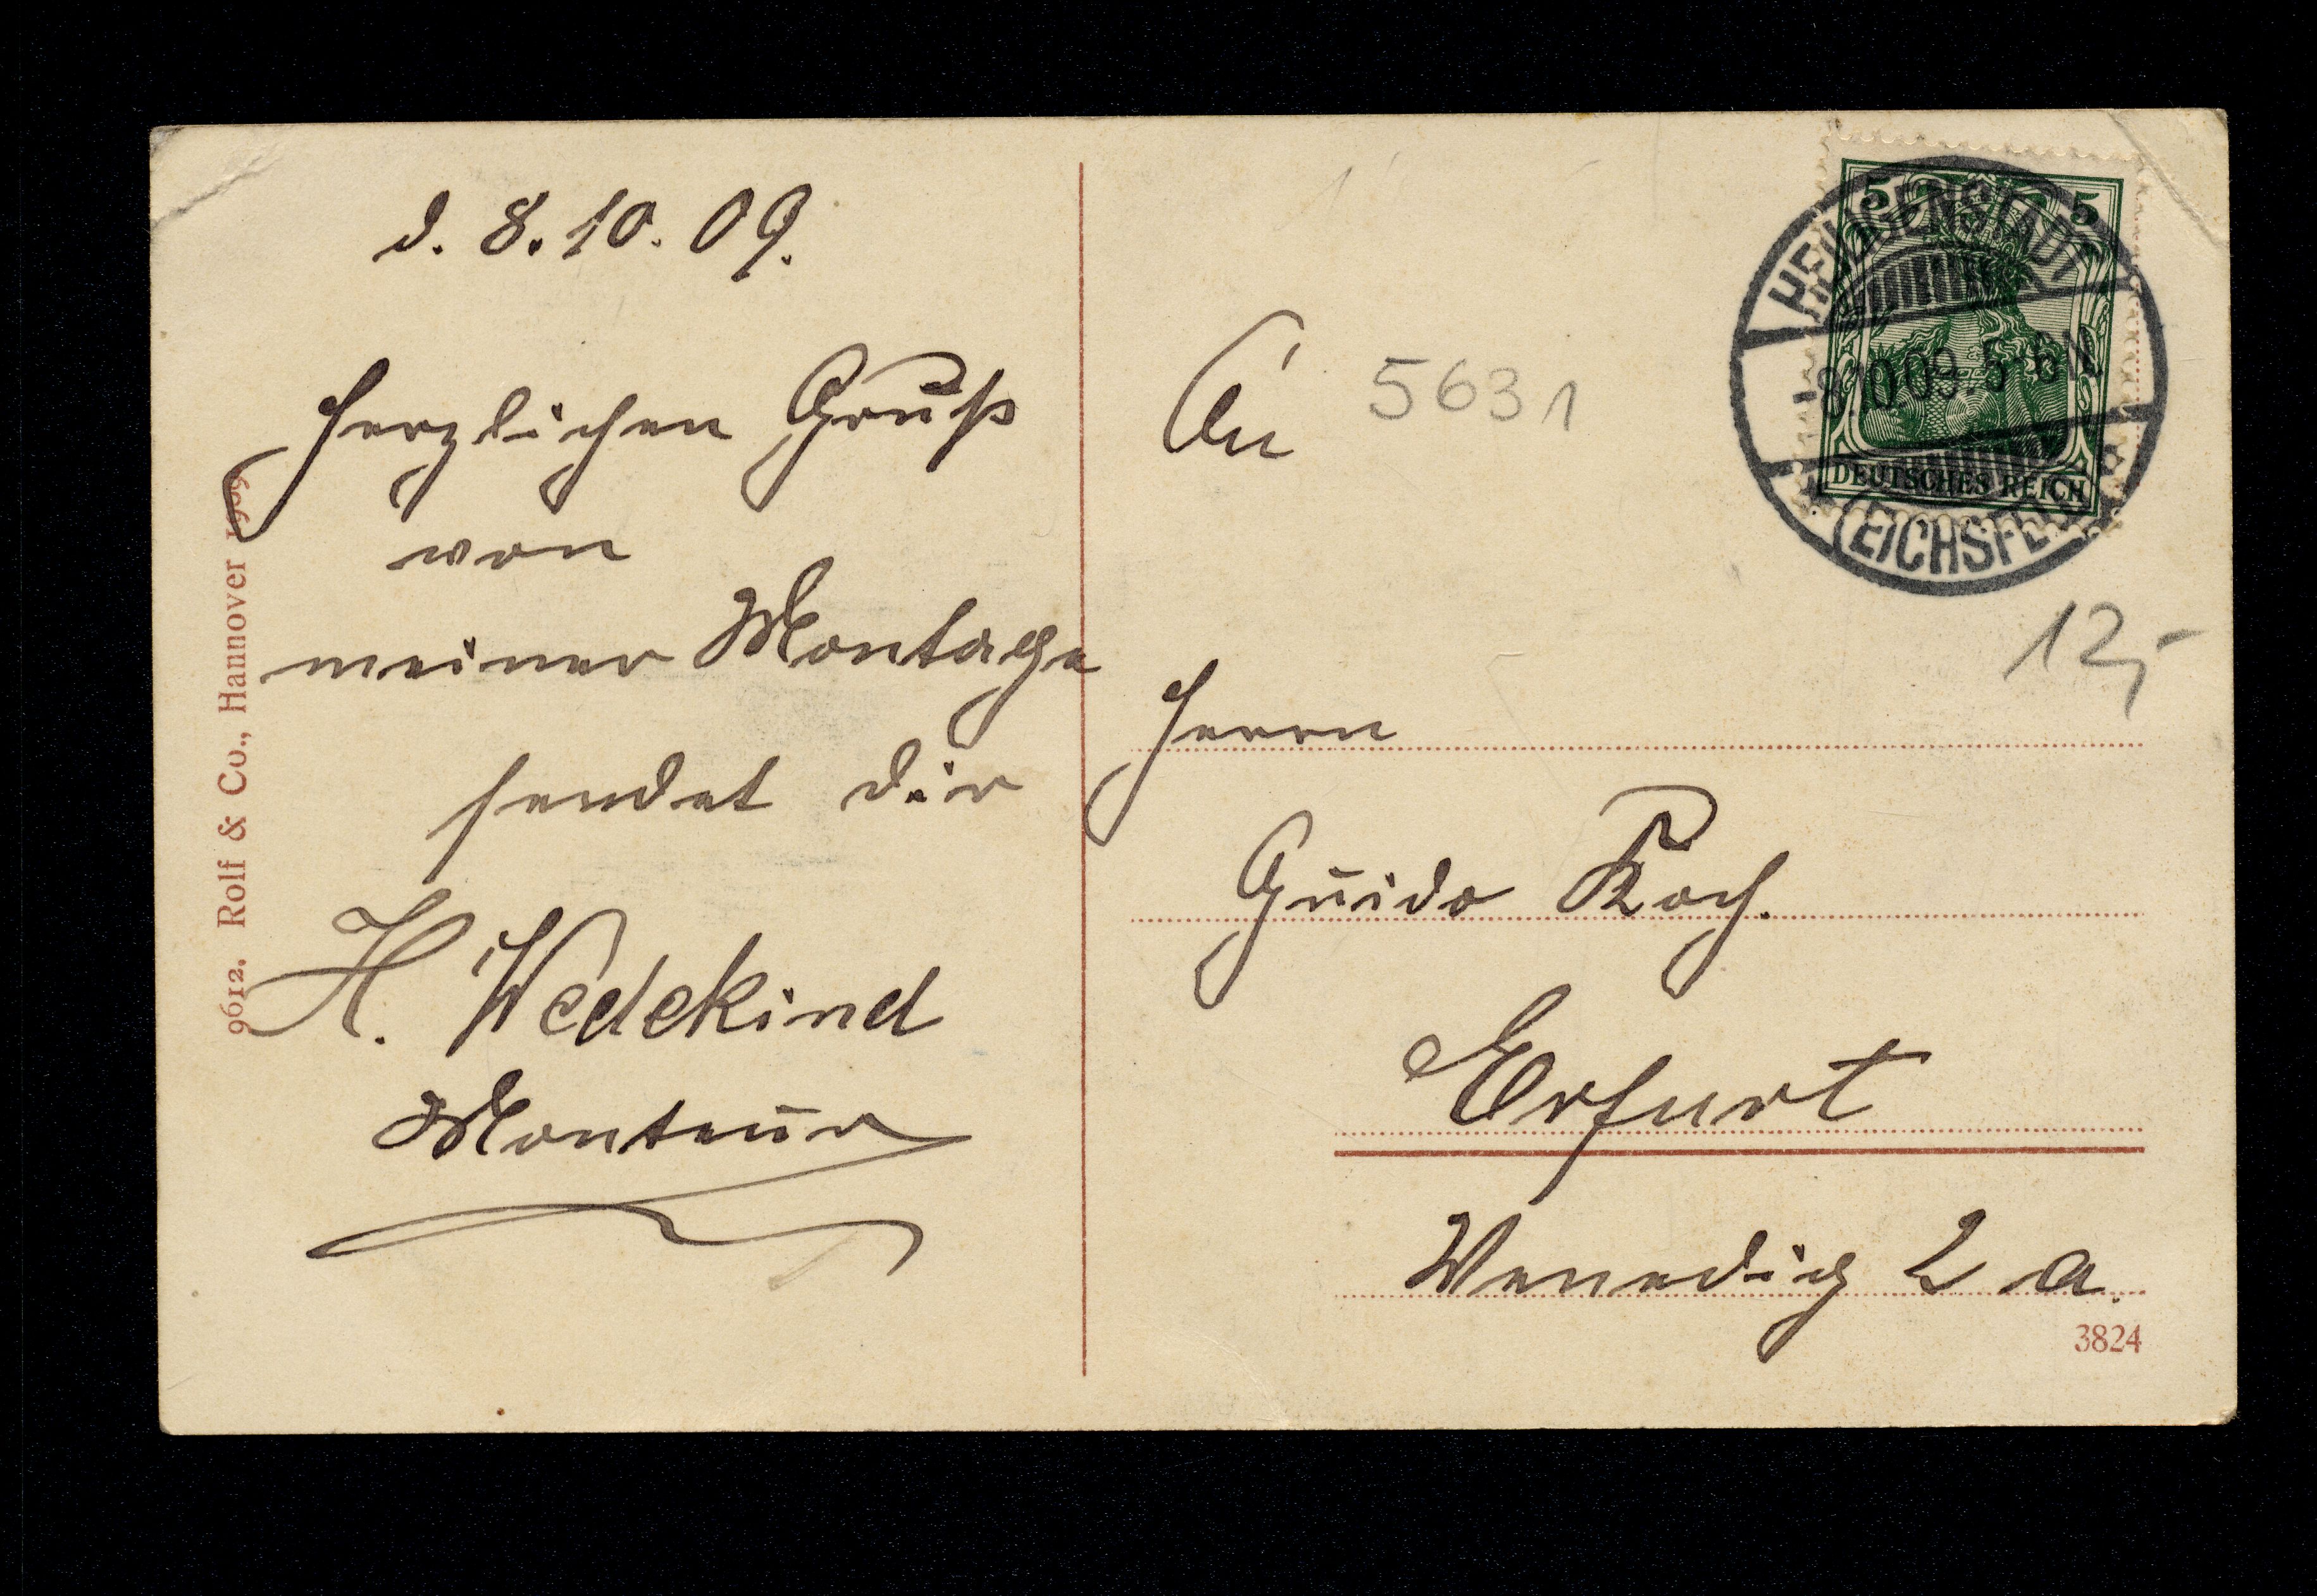 d. 8.10.09.
Herzlichen Gruß
von
meiner Montage
sendet dir
H. Wedekind
Monteur
9612. Rolf & Co., Hannover 1909
An
5631
Herrn
Guido Koch.
Erfurt
Wenedig 2 a.
3824
12,-
5 5
DEUTSCHES REICH
HEILIGENSTADT
8.10.09. 5-6 N
(EICHSFELD)